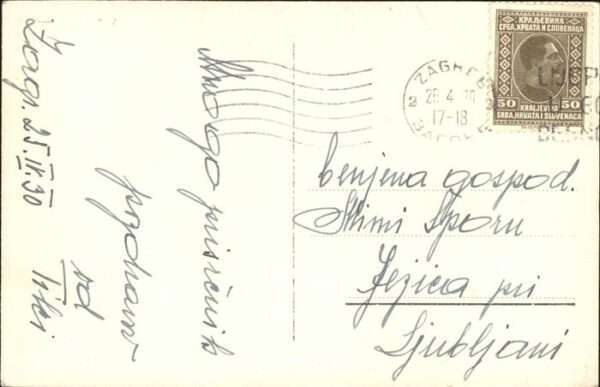 Zagr. 25.IV.30
Mnogo prisrčnih
pozdravov
od
КРАЉЕВИНА
СРБА, ХРВАТА И СЛОВЕНАЦА
50 KRALJEVINA 50
SRBA, HRVATA I SLOVENACA
ZAGREB
2
26.4.30
17-18
ЗАГРЕБ
cenjena gospod.
Mimi Šporn
Ježica pri
Ljubljani